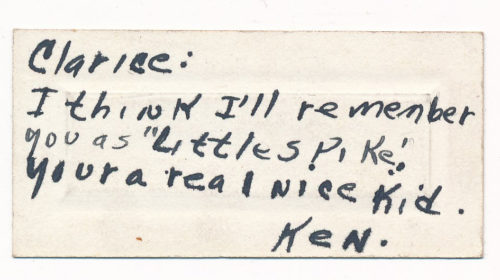 Clarice:
I think I'll remenber
you as "Little Spike",
your a real nice kid.
Ken.